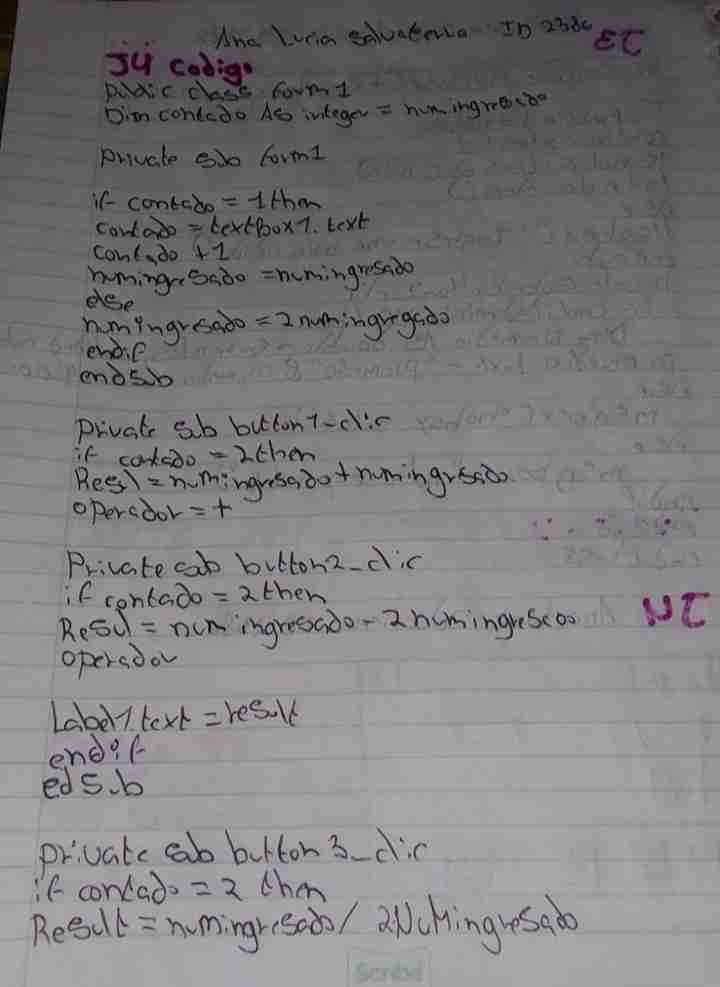 Ana Lucia Salvatierra ID 2386
J4 Codigo
Public class form1
Dim contado As integer = numingresado
private sub form1
if contado = 1 then
contado = textbox1.text
contado +1
numingresado = numingresado
else
numingresado = 2numingregado
endif
endsub
private sub button1_clic
if contado = 2 then
Resul = numingresado + numingresado
operador = +
Private sub button2_clic
if contado = 2 then
Resul = numingresado - 2numingresado
operador
Label1.text = result
endif
edsub
private sub button3_clic
if contado = 2 then
Result = numingresado / 2NuMingresado
Scribd